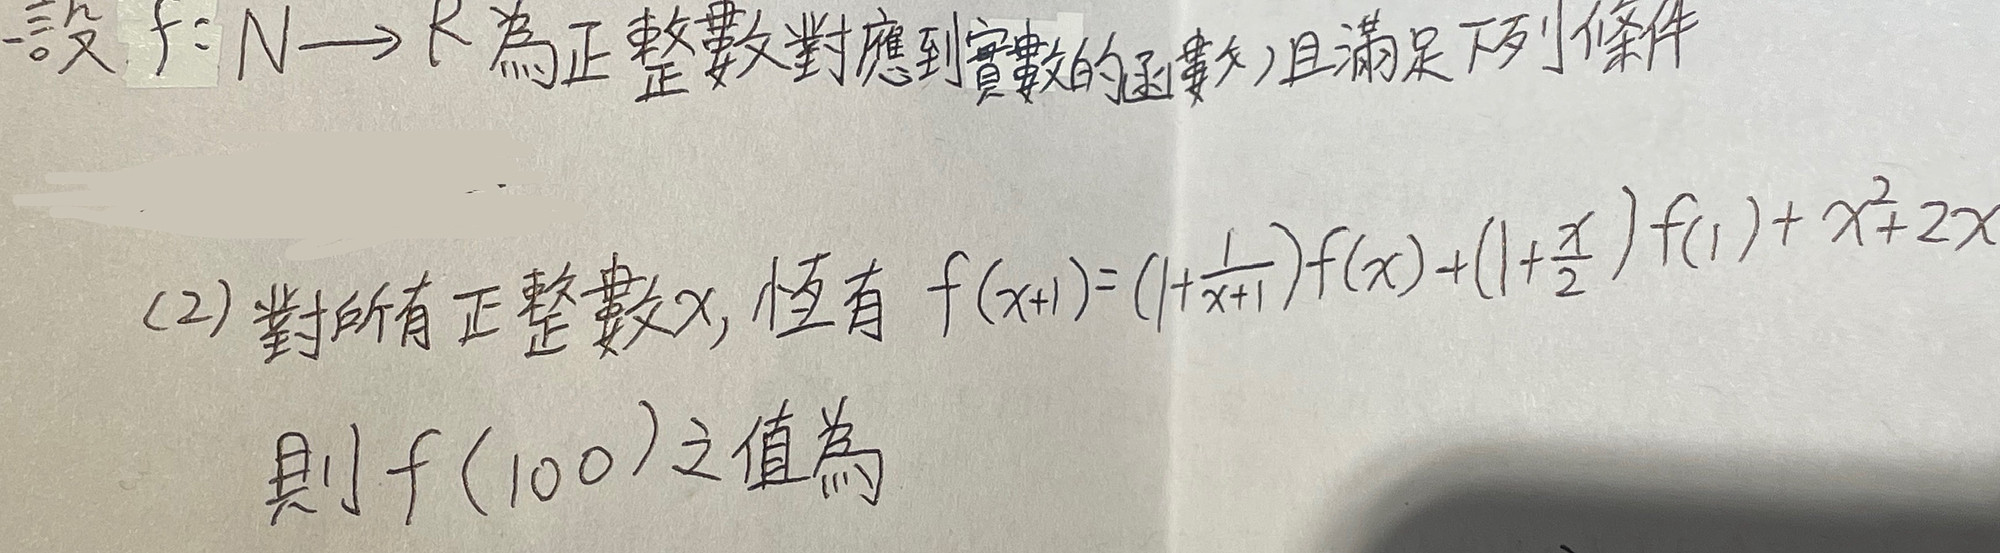 設 f: N→R 為正整數對應到實數的函數,且滿足下列條件
(2) 對所有正整數x, 恆有 f(x+1)=(1+\frac{1}{x+1})f(x)+(1+\frac{x}{2})f(1)+x²+2x
則 f(100)之值為